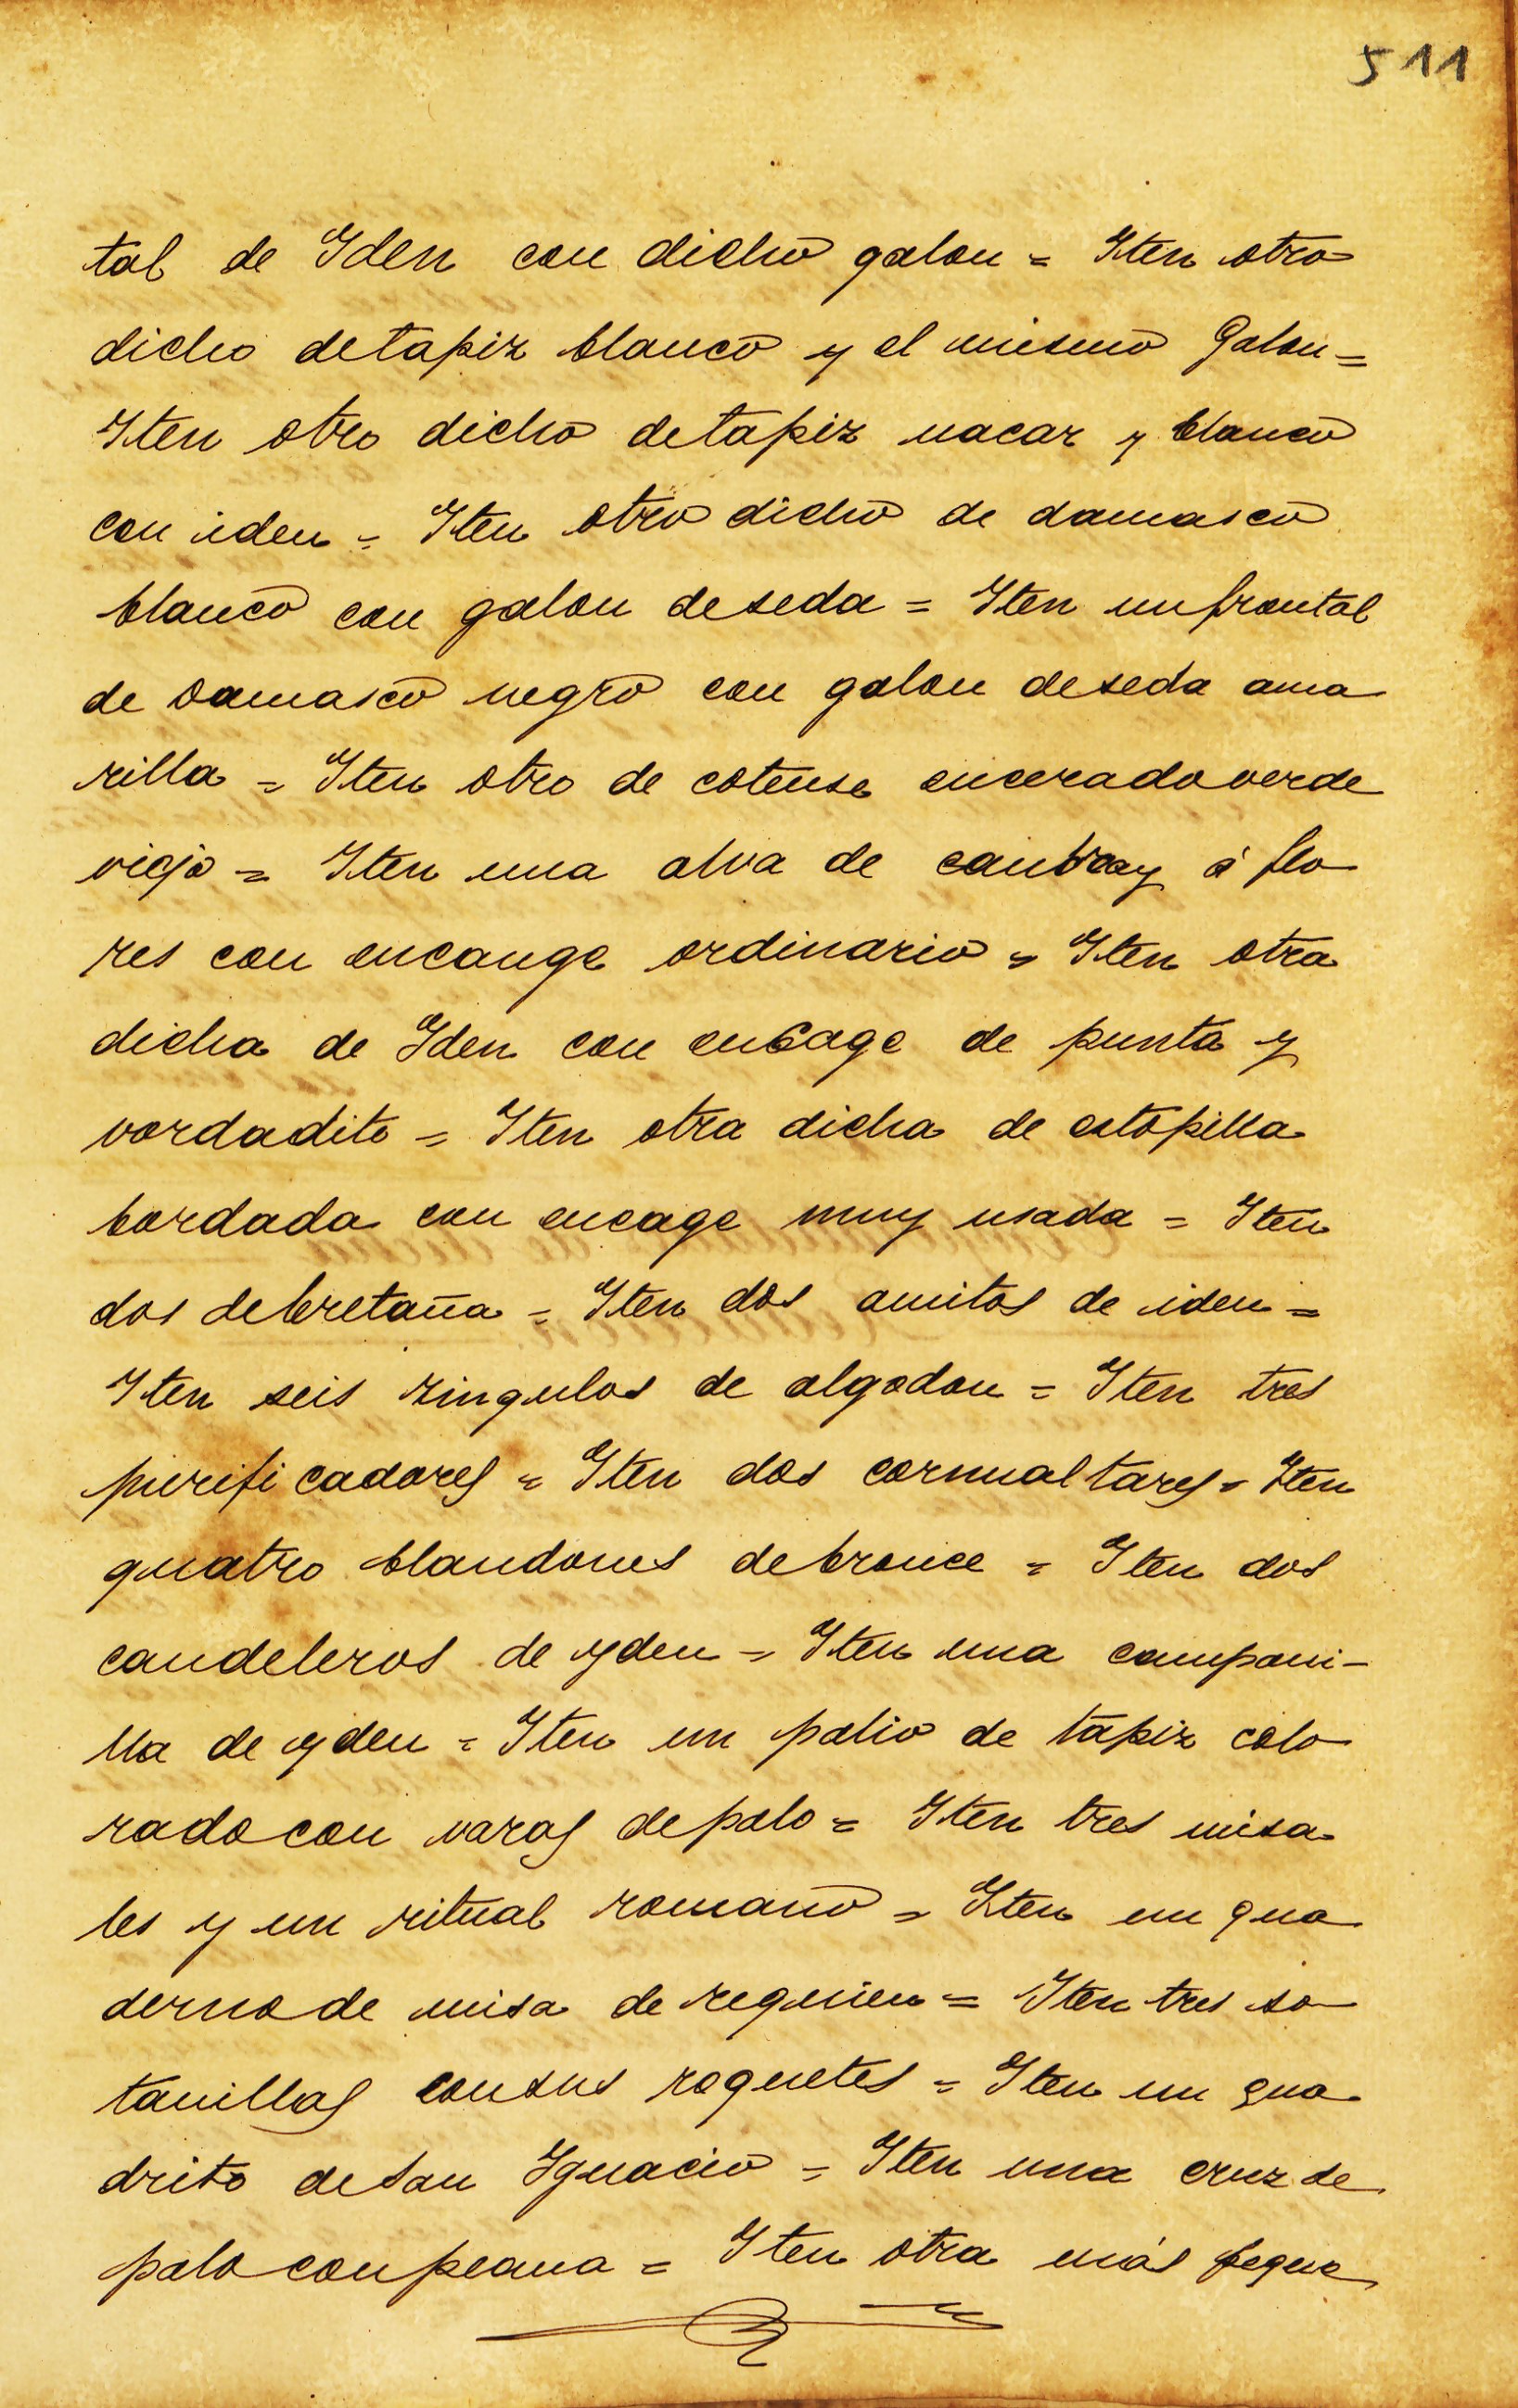 511
tal de Yden con dicho galon = Yten otro
dicho de tapiz blanco y el mismo Galon =
Yten otro dicho de tapiz nacar y blanco
con iden = Yten otro dicho de damasco
blanco con galon de seda = Yten un frontal
de Damasco negro con galon de seda ama
rilla = Yten otro de cotense encerado verde
viejo = Yten una alva de canbray á flo
res con encange ordinario = Yten otra
dicha de Yden con encage de punta y
vordadito = Yten otra dicha de estopilla
bordada con encage muy usada = Yten
dos de bretaña = Yten dos amitos de iden =
Yten seis zingulos de algodon = Yten tres
purificadores = Yten dos cornualtares = Yten
quatro blandones de bronce = Yten dos
candeleros de yden = Yten una campani-
lla de yden = Yten un palio de tapiz colo
rado con varas de palo = Yten tres misa
les y un ritual romano = Yten un qua
derno de misa de requien = Yten tres so
tanillas con sus roquetes = Yten un qua
drito de San Ygnacio = Yten una cruz de
palo con peana = Yten otra más peque